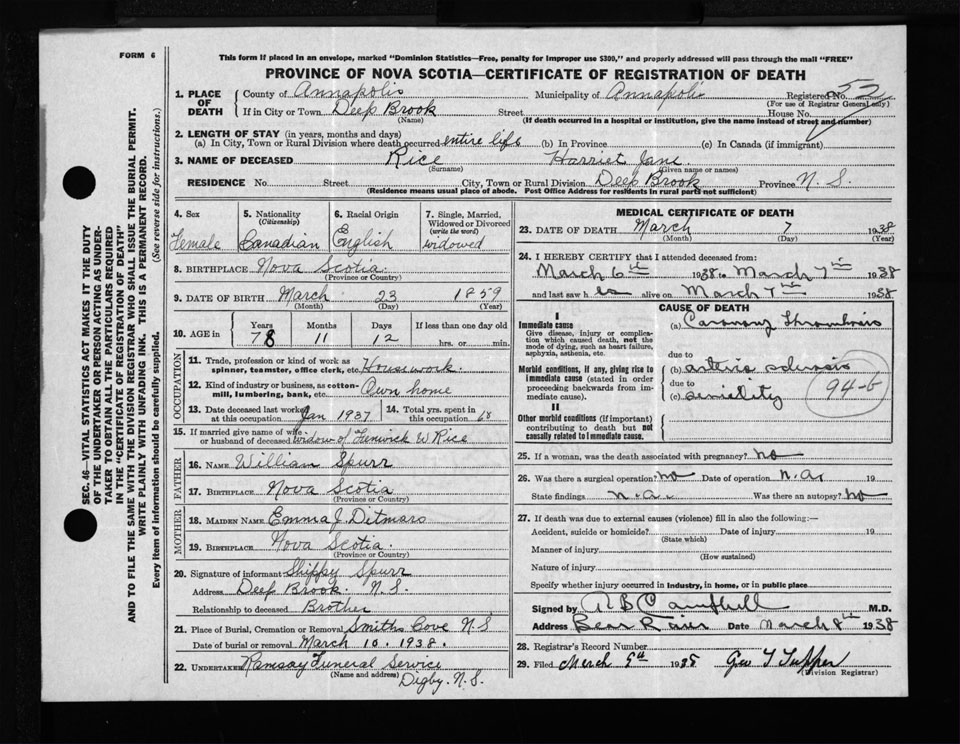 FORM 6
This form if placed in an envelope, marked "Dominion Statistics—Free, penalty for improper use $300," and properly addressed will pass through the mail "FREE"
PROVINCE OF NOVA SCOTIA—CERTIFICATE OF REGISTRATION OF DEATH
1. PLACE OF DEATH County of Annapolis Municipality of Annapolis Registered No. 52
(For use of Registrar General only)
If in City or Town Deep Brook Street House No.
(Name) (If death occurred in a hospital or institution, give the name instead of street and number)
2. LENGTH OF STAY (in years, months and days)
(a) In City, Town or Rural Division where death occurred entire life (b) In Province (c) In Canada (if immigrant)
3. NAME OF DECEASED Rice Harriet Jane
(Surname) (Given name or names)
RESIDENCE No. Street City, Town or Rural Division Deep Brook Province N. S.
(Residence means usual place of abode. Post Office Address for residents in rural parts not sufficient)
SEC. 46—VITAL STATISTICS ACT MAKES IT THE DUTY
OF THE UNDERTAKER OR PERSON ACTING AS UNDER-
TAKER TO OBTAIN ALL THE PARTICULARS REQUIRED
IN THE "CERTIFICATE OF REGISTRATION OF DEATH"
AND TO FILE THE SAME WITH THE DIVISION REGISTRAR WHO SHALL ISSUE THE BURIAL PERMIT.
WRITE PLAINLY WITH UNFADING INK. THIS IS A PERMANENT RECORD.
Every item of information should be carefully supplied. (See reverse side for instructions.)
4. Sex 5. Nationality (Citizenship) 6. Racial Origin 7. Single, Married, Widowed or Divorced (write the word)
Female Canadian English widowed
8. BIRTHPLACE Nova Scotia
(Province or Country)
9. DATE OF BIRTH March 23 1859
(Month) (Day) (Year)
10. AGE in Years Months Days If less than one day old
78 11 12 hrs. or min.
OCCUPATION
11. Trade, profession or kind of work as spinner, teamster, office clerk, etc. Housework.
12. Kind of industry or business, as cotton-mill, lumbering, bank, etc. Own home
13. Date deceased last worked at this occupation Jan 1937 14. Total yrs. spent in this occupation 60
15. If married give name of wife or husband of deceased widow of Fenwick W Rice
FATHER
16. NAME William Spurr
17. BIRTHPLACE Nova Scotia
(Province or Country)
MOTHER
18. MAIDEN NAME Emma J. Ditmars
19. BIRTHPLACE Nova Scotia
(Province or Country)
20. Signature of informant Shippy Spurr
Address Deep Brook N. S.
Relationship to deceased Brother
21. Place of Burial, Cremation or Removal Smiths Cove N.S
Date of burial or removal March 10. 1938.
22. UNDERTAKER Ramsay Funeral Service
(Name and address) Digby. N. S.
MEDICAL CERTIFICATE OF DEATH
23. DATE OF DEATH March 7 1938
(Month) (Day) (Year)
24. I HEREBY CERTIFY that I attended deceased from:
March 6th 1938 to March 7th 1938
and last saw h er alive on March 7th 1938
CAUSE OF DEATH
I
Immediate cause
Give disease, injury or complication which caused death, not the mode of dying, such as heart failure, asphyxia, asthenia, etc.
(a) Coronary Thrombosis
due to
Morbid conditions, if any, giving rise to immediate cause (stated in order proceeding backwards from immediate cause).
(b) arterio sclerosis
due to
(c) senility
94-b
II
Other morbid conditions (if important) contributing to death but not causally related to immediate cause.
25. If a woman, was the death associated with pregnancy? no
26. Was there a surgical operation? no Date of operation n.a. 19
State findings n.a. Was there an autopsy? no
27. If death was due to external causes (violence) fill in also the following:—
Accident, suicide or homicide? Date of injury 19
(State which)
Manner of injury
(How sustained)
Nature of injury
Specify whether injury occurred in industry, in home, or in public place
Signed by A B Campbell M.D.
Address Bear River Date March 8th 1938
28. Registrar's Record Number
29. Filed March 9th 1938 Geo T Tupper
(Division Registrar)